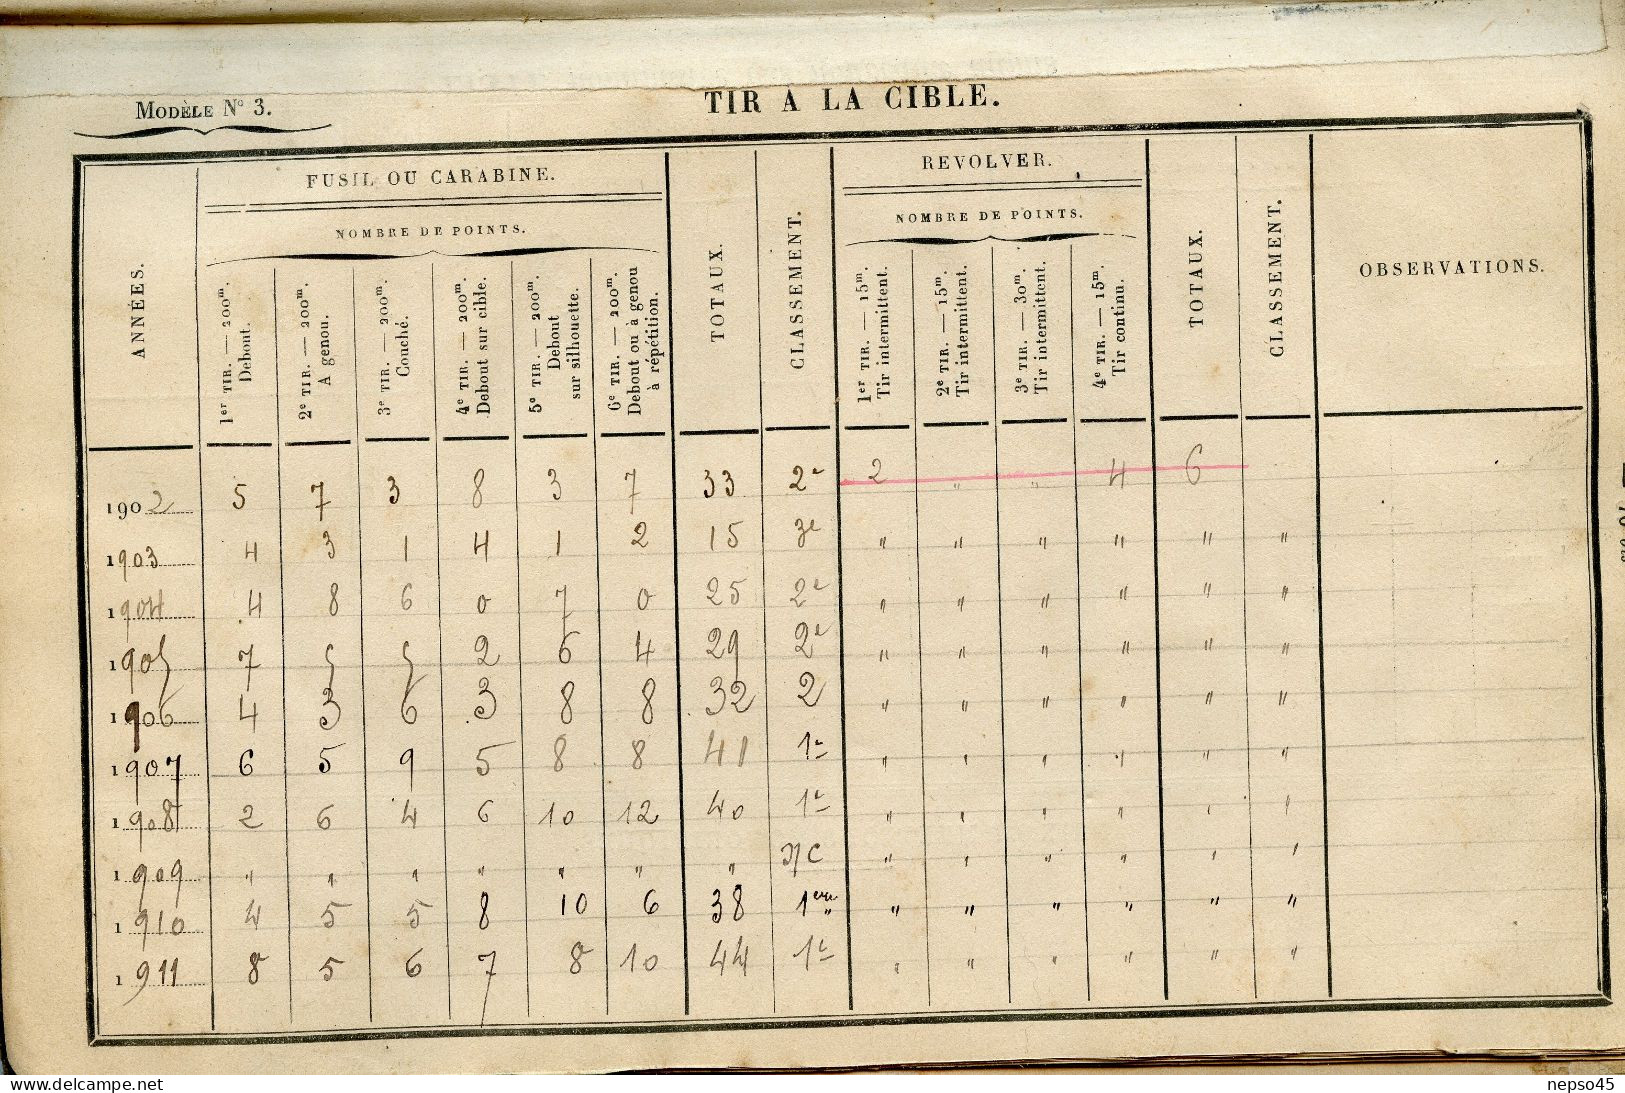 MODÈLE N° 3.
TIR A LA CIBLE.
ANNÉES.
FUSIL OU CARABINE.
NOMBRE DE POINTS.
1er TIR. — 200m.
Debout.
2e TIR. — 200m.
A genou.
3e TIR. — 200m.
Couché.
4e TIR. — 200m.
Debout sur cible.
5e TIR. — 200m.
Debout
sur silhouette.
6e TIR. — 200m.
Debout ou à genou
à répétition.
TOTAUX.
CLASSEMENT.
REVOLVER.
NOMBRE DE POINTS.
1er TIR. — 15m.
Tir intermittent.
2e TIR. — 15m.
Tir intermittent.
3e TIR. — 30m.
Tir intermittent.
4e TIR. — 15m.
Tir continu.
TOTAUX.
CLASSEMENT.
OBSERVATIONS.
1902 5 7 3 8 3 7 33 2e 2 " " 4 6
1903 4 3 1 4 1 2 15 3e " " " " " "
1904 4 8 6 0 7 0 25 2e " " " " " "
1905 7 5 5 2 6 4 29 2e " " " " " "
1906 4 3 6 3 8 8 32 2 " " " " " "
1907 6 5 9 5 8 8 41 1e " " " " " "
1908 2 6 4 6 10 12 40 1e " " " " " "
1909 " " " " " " " NC " " " " " "
1910 4 5 5 8 10 6 38 1ere " " " " " "
1911 8 5 6 7 8 10 44 1e " " " " " "
www.delcampe.net
nepso45